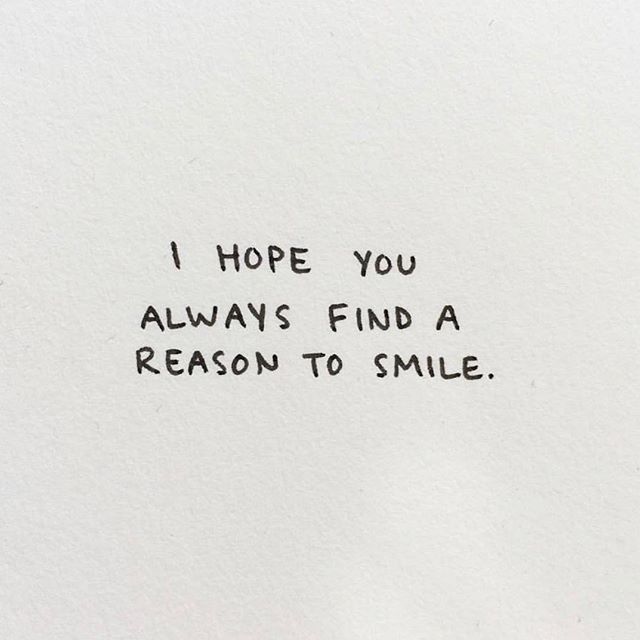 I HOPE YOU
ALWAYS FIND A
REASON TO SMILE.